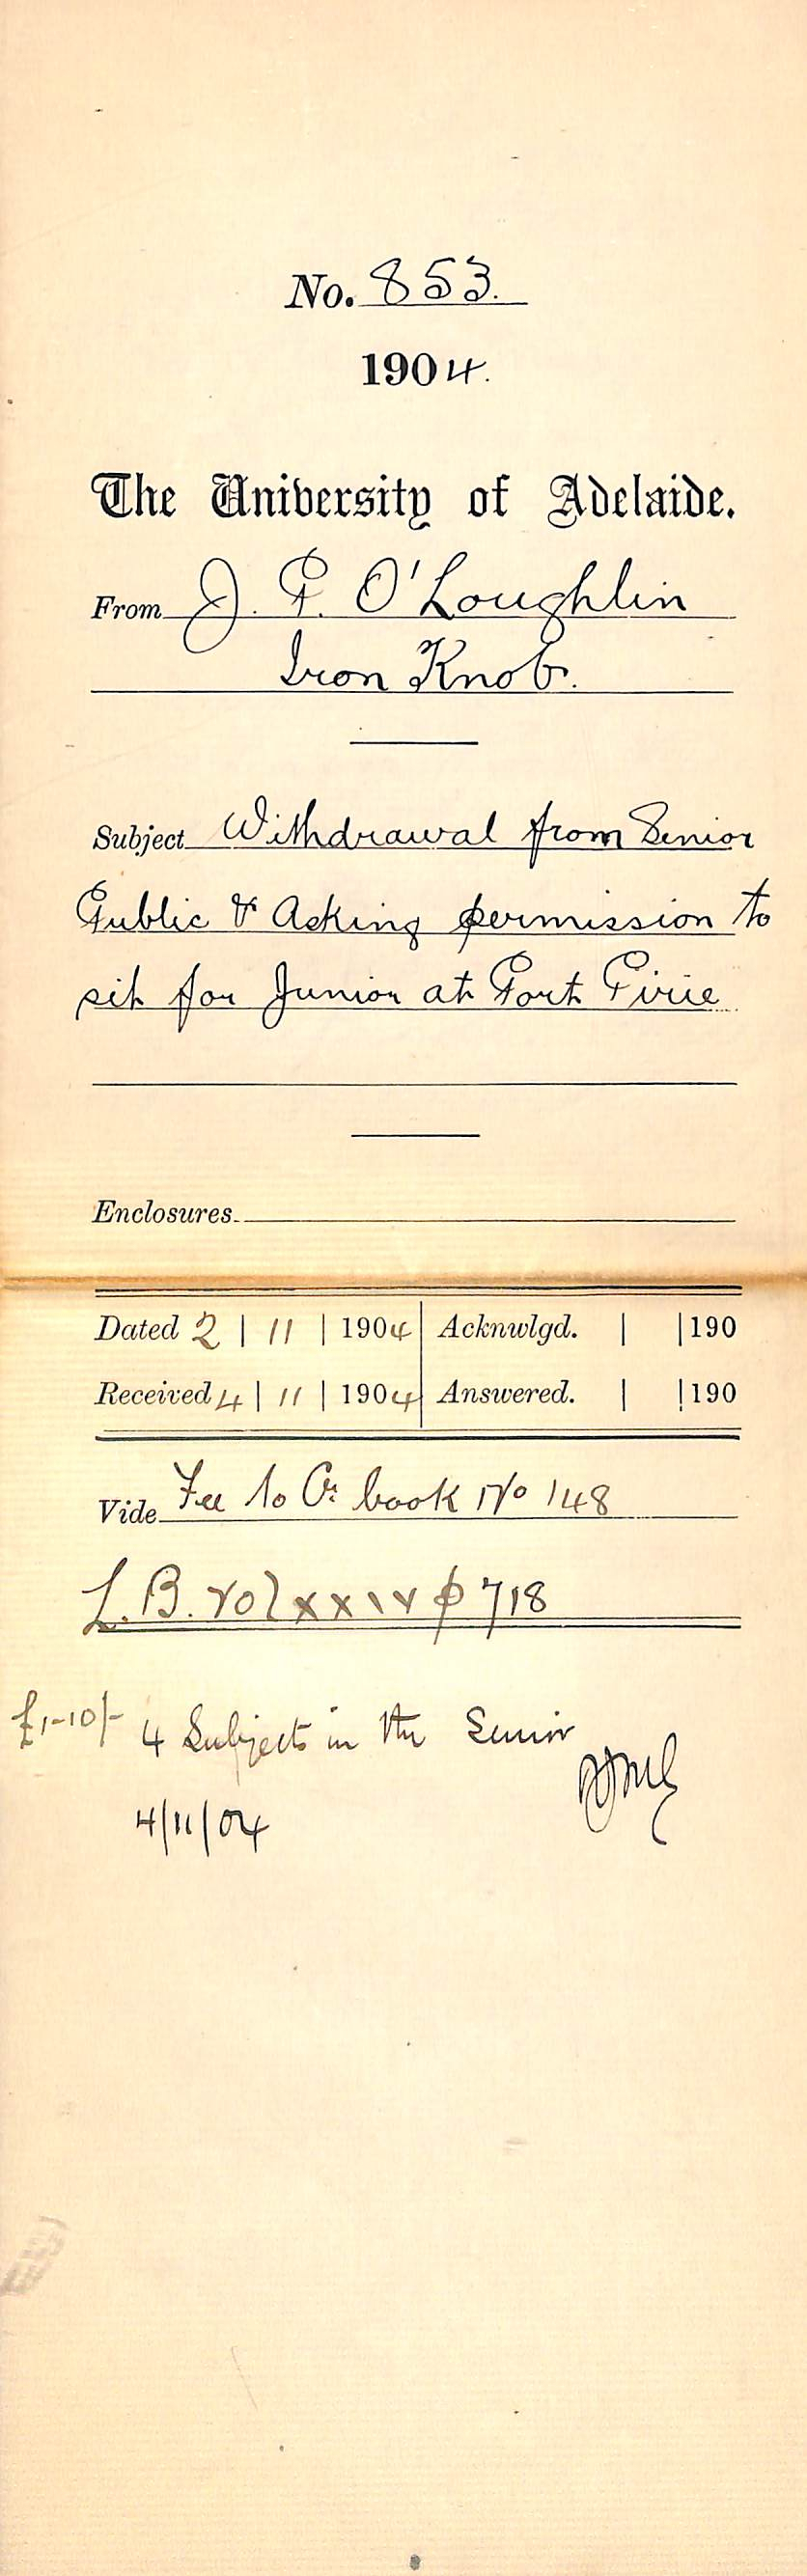 No. 853.
1904.
The University of Adelaide.
From J. P. O'Loughlin
Iron Knob.
Subject Withdrawal from Senior
Public & Asking permission to
sit for Junior at Port Pirie
Enclosures
Dated 2 | 11 | 1904 Acknwlgd. | | 190
Received 4 | 11 | 1904 Answered. | | 190
Vide Fee to Cr book No 148
L.B. Vol xxiv p 718
£1-10/- 4 Subjects in the Senior
4/11/04